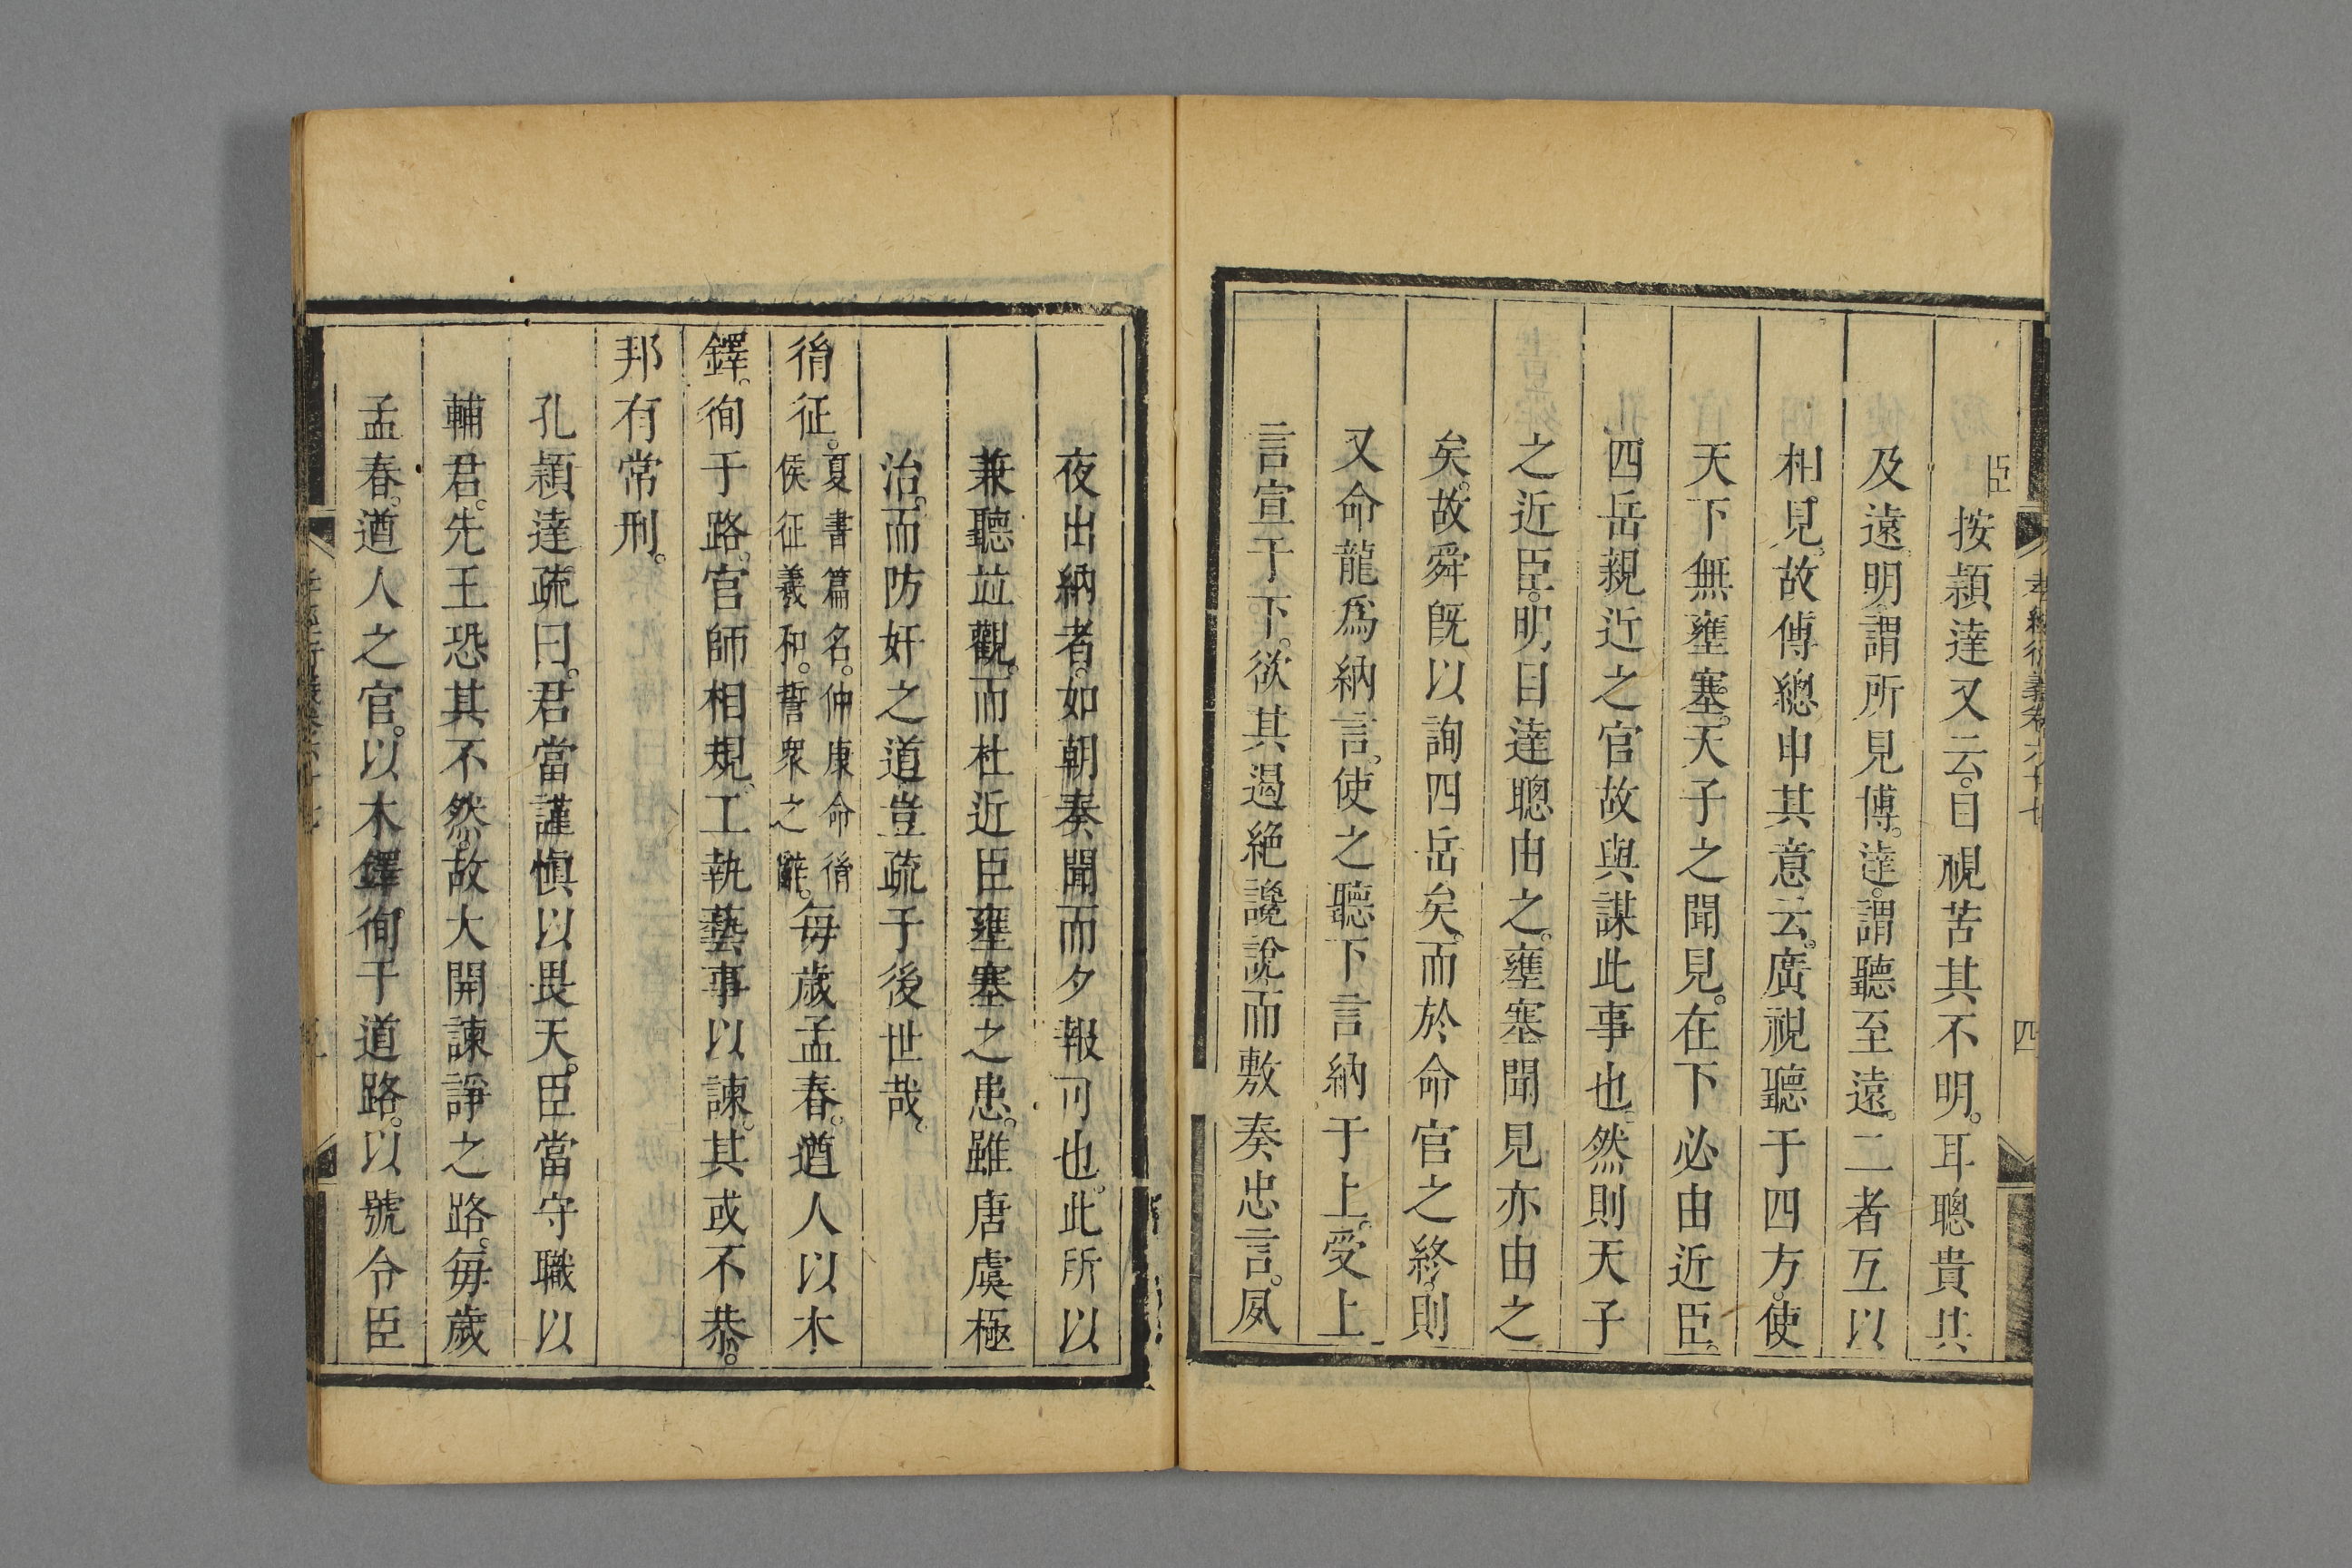 臣按穎達又云。目視苦其不明。耳聰貴其
及遠。明謂所見博。達謂聽至遠。二者互以
相見。故傳總申其意云。廣視聽于四方。使
天下無壅塞。天子之聞見。在下必由近臣。
四岳親近之官故與謀此事也。然則天子
之近臣。明目達聰由之。壅塞聞見亦由之
矣。故舜既以詢四岳矣。而於命官之終。則
又命龍爲納言。使之聽下言納于上。受上
言宣于下。欲其遏絶讒說而敷奏忠言。夙
夜出納者。如朝奏聞而夕報可也。此所以
兼聽竝觀。而杜近臣壅塞之患。雖唐虞極
治。而防奸之道豈疏于後世哉。
胤征。夏書篇名。仲康命胤侯征羲和。誓衆之辭。每歲孟春。遒人以木
鐸。徇于路。官師相規。工執藝事以諫。其或不恭。
邦有常刑。
孔穎達疏曰。君當謹愼以畏天。臣當守職以
輔君。先王恐其不然。故大開諫諍之路。每歲
孟春。遒人之官。以木鐸徇于道路。以號令臣